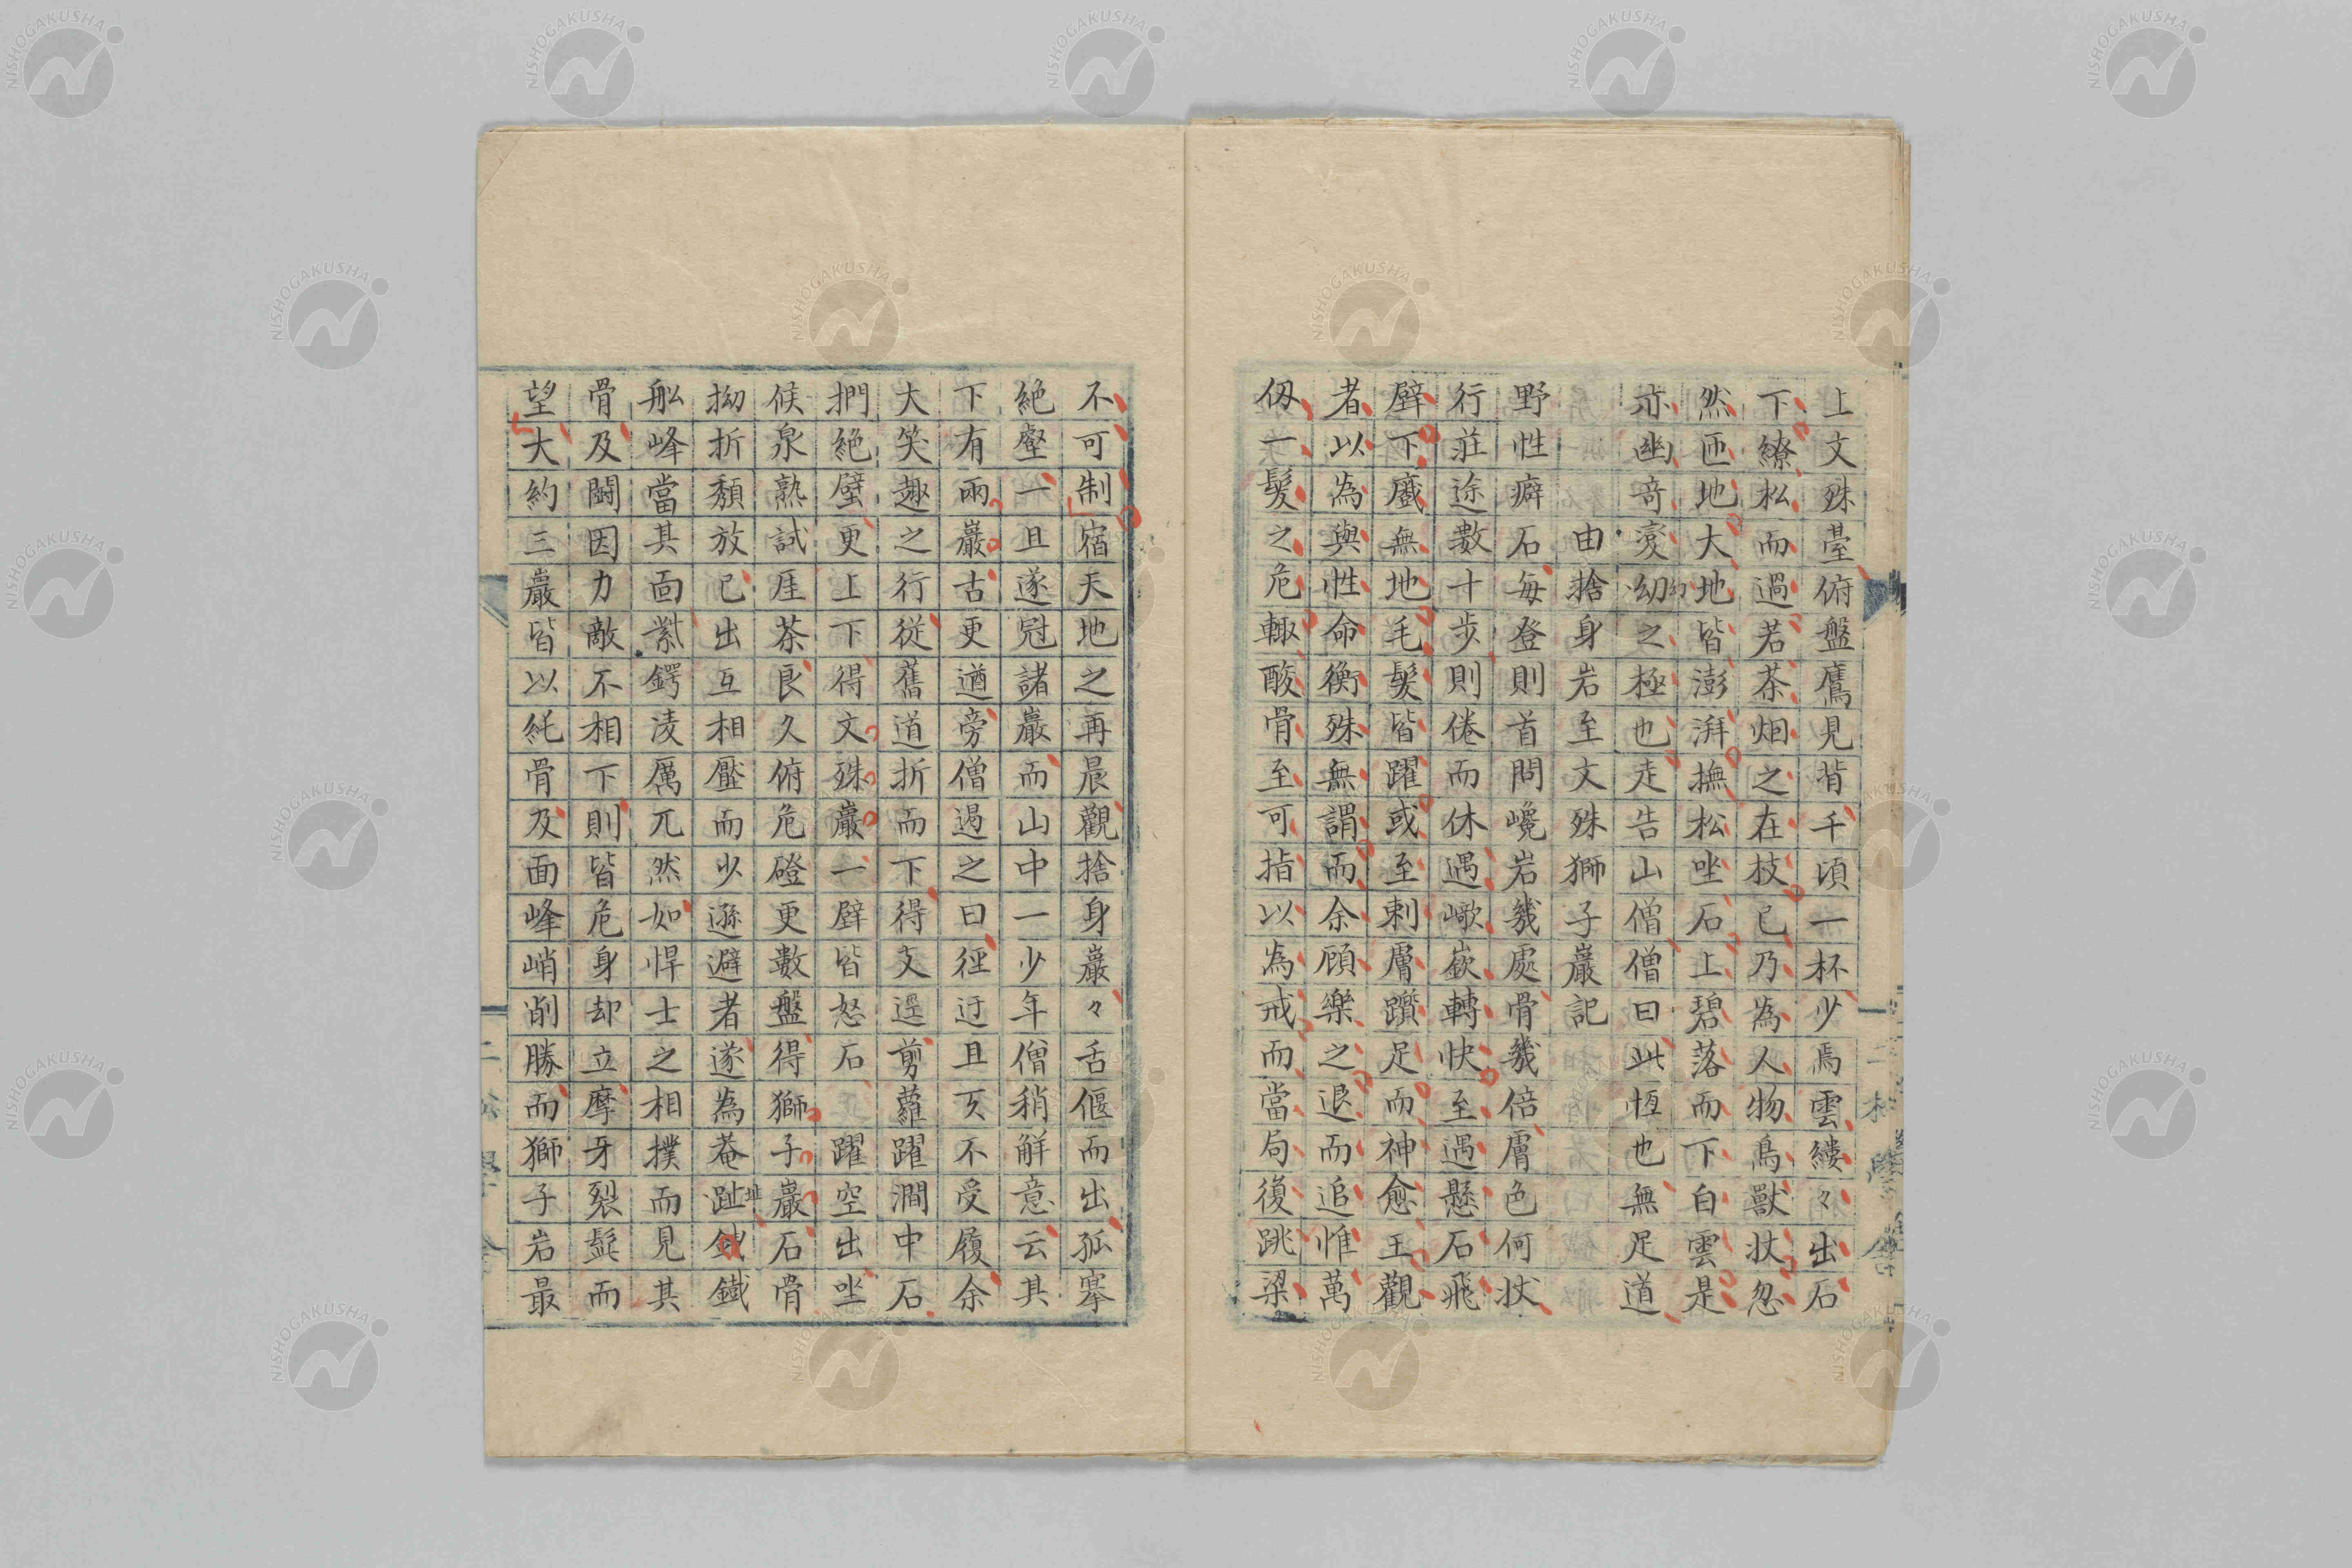 上文殊臺俯盤鷹見背千頃一杯少焉雲縷々出石
下繚松而過若茶烟之在枝已乃為人物鳥獸狀忽
然匝地大地皆澎湃撫松坐石上碧落而下白雲是
亦幽奇變幻之極也走告山僧僧曰此恆也無足道
由捨身岩至文殊獅子巖記
野性癖石每登則首問巉岩幾處骨幾倍膚色何狀
行莊途數十步則倦而休遇嶔嶔轉快至遇懸石飛
壁下廬無地毛髮皆躍或至刺膚躓足而神愈王觀
者以為與性命衡殊無謂而余顧樂之退而追惟萬
仭一髮之危輒酸骨至可指以為戒而當局復跳梁
不可制宿天地之再晨觀捨身巖々舌偃而出孤搴
絕壑一且遂冠諸巖而山中一少年僧稍解意云其
下有兩巖古更遒旁僧過之曰徑迂且仄不受履余
大笑趣之行従舊道折而下得支逕剪蘿躍澗中石
捫絕壁更上下得文殊巖一壁皆怒石躍空出坐
候泉熟試厓茶良久俯危磴更數盤得獅子巖石骨
拗折頽放已出互相壓而少遜避者遂為菴趾鐵
舩峰當其面紫鍔凌厲兀然如悍士之相撲而見其
骨及鬪因力敵不相下則皆危身却立摩牙裂髭而
望大約三巖皆以純骨及面峰峭削勝而獅子岩最
二松學舍